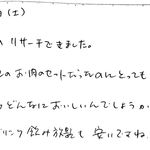 (土)
リサーチできました。
のお肉のセットだったのにとっても
どんなにおいしいんでしょうか
ドリンク飲み放題も安いですね